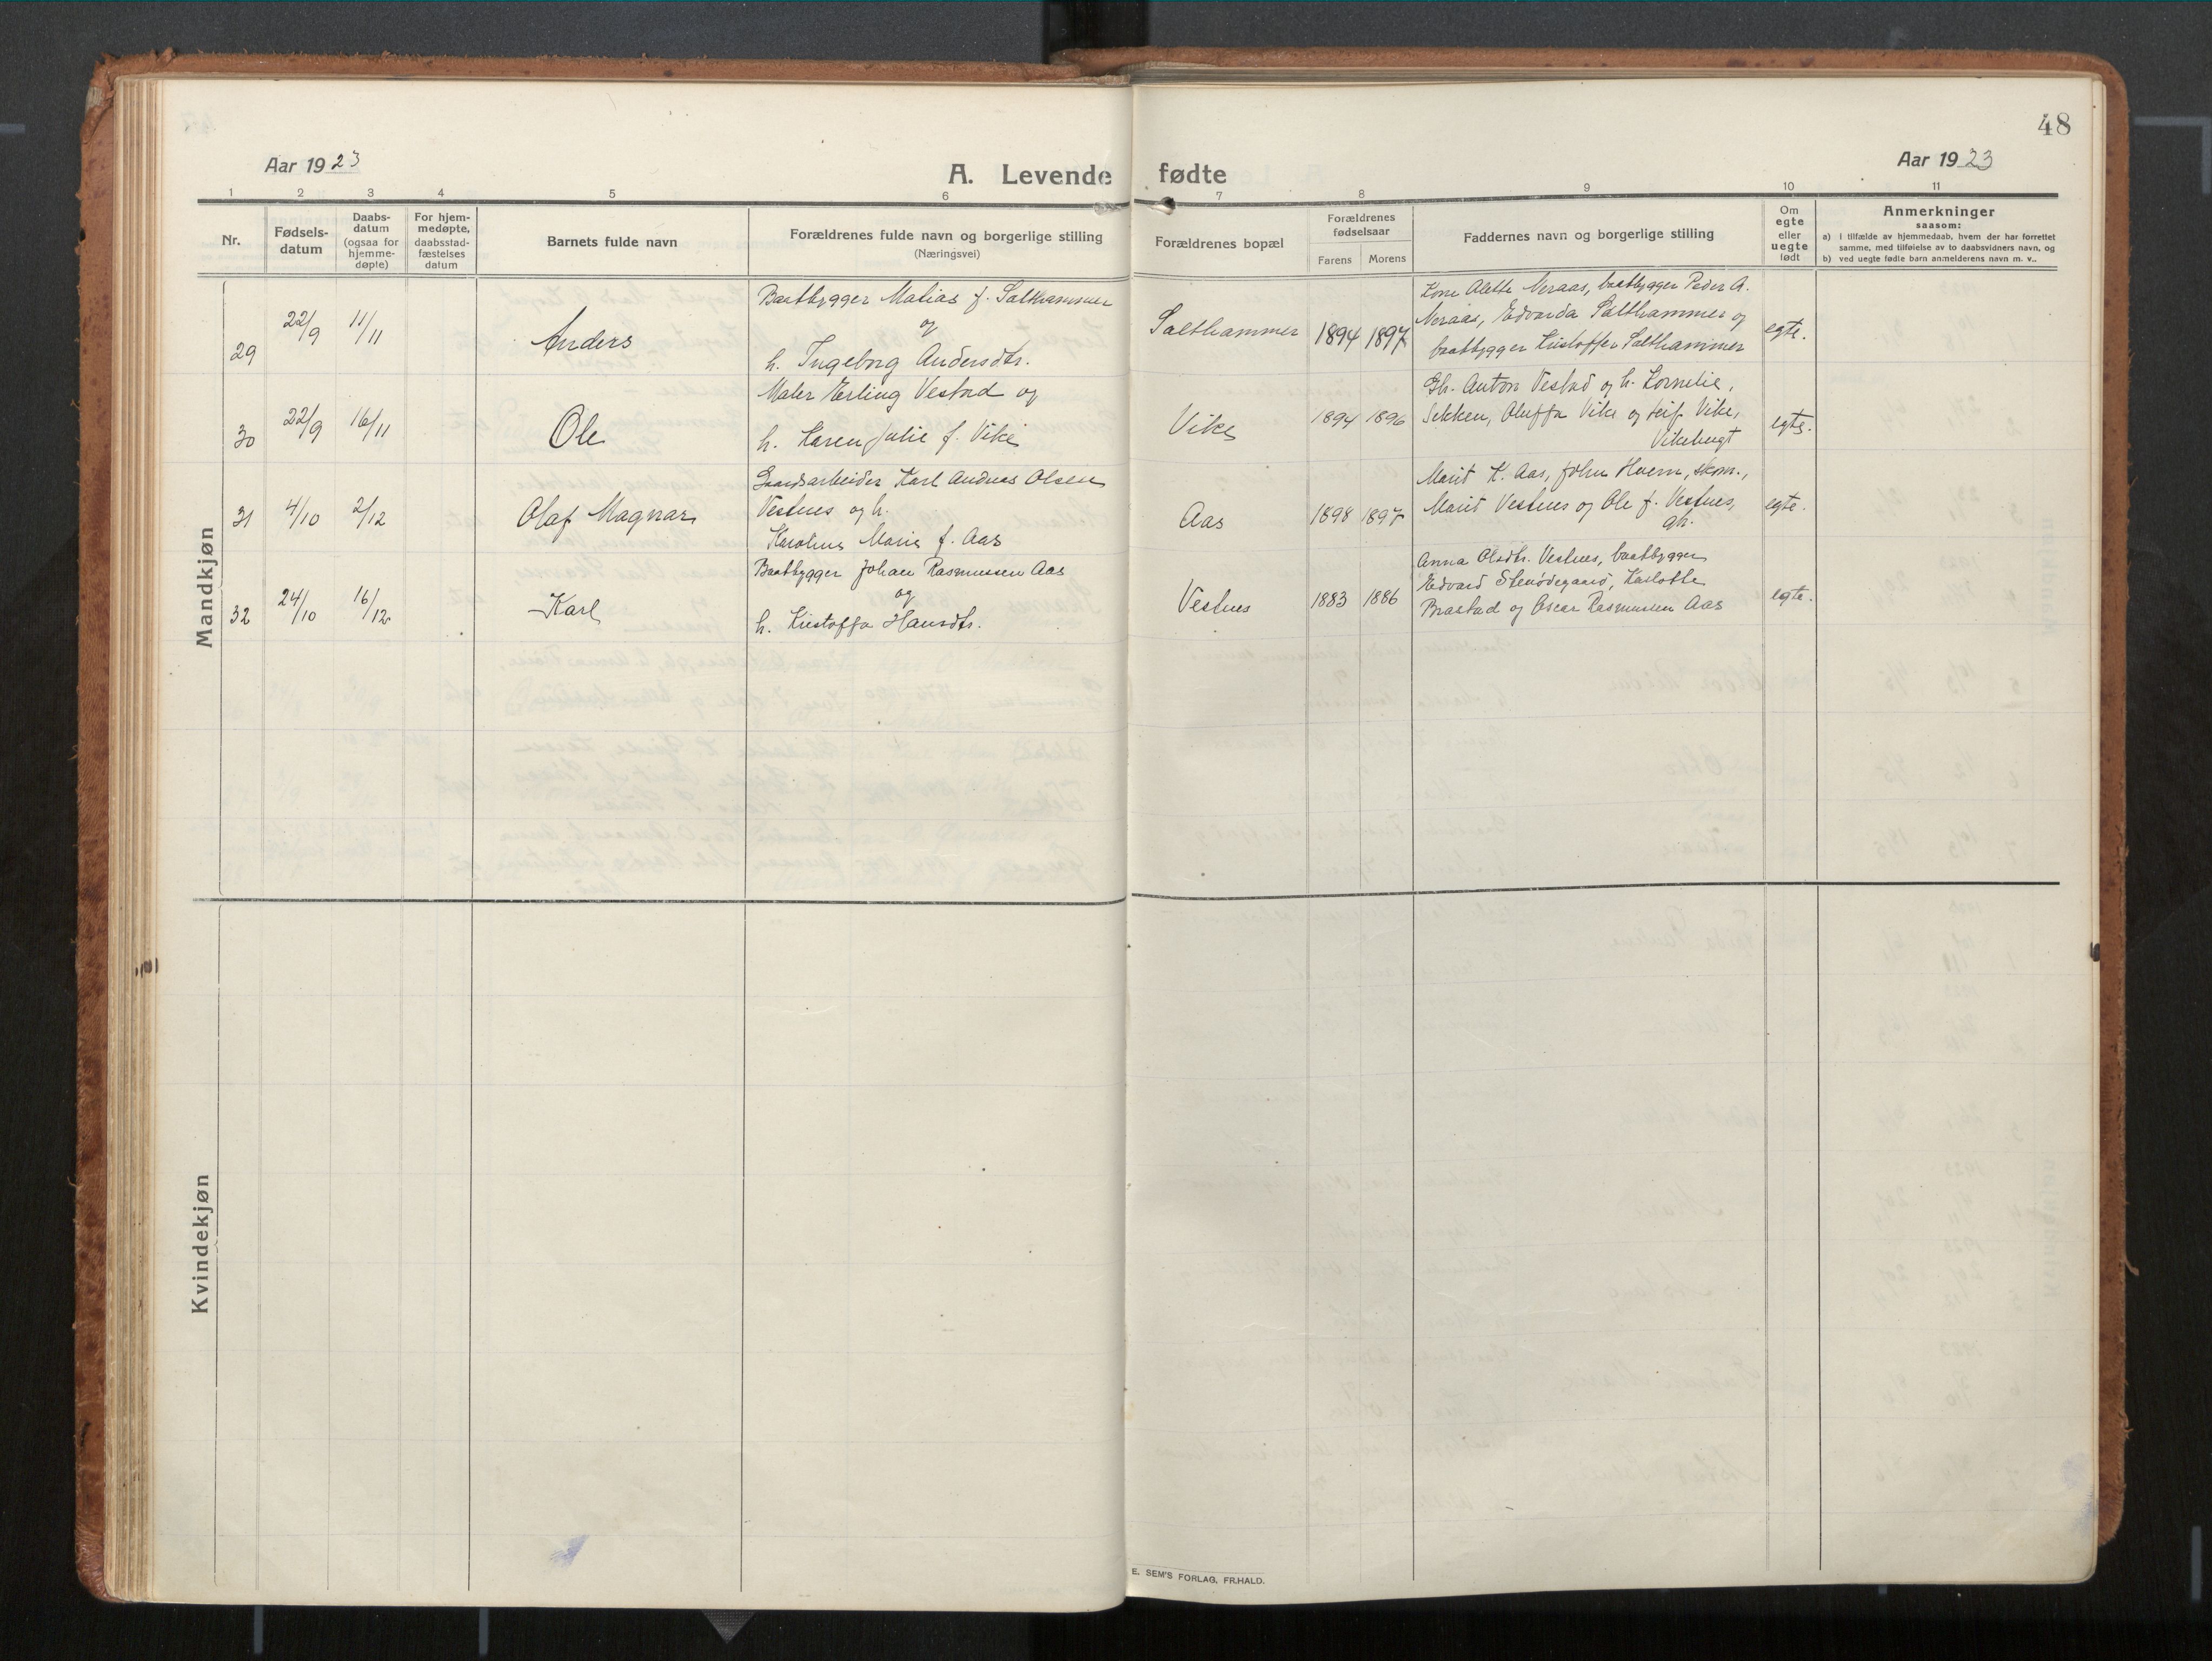 48
Aar 1923
A. Levende fødte
Aar 1923
1 2 3 4 5 6 7 8 9 10 11
Nr.
Fødsels-
datum
Daabs-
datum
(ogsaa for
hjemme-
døpte)
For hjem-
medøpte,
daabsstad-
fæstelses
datum
Barnets fulde navn
Forældrenes fulde navn og borgerlige stilling
(Næringsvei)
Forældrenes bopæl
Forældrenes
fødselsaar
Farens Morens
Faddernes navn og borgerlige stilling
Om
egte
eller
uegte
født
Anmerkninger
saasom:
a) I tilfælde av hjemmedaab, hvem der har forrettet
samme, med tilføielse av to daabsvidners navn, og
b) ved uegte fødte barn anmelderens navn m. v..
Mandkjøn
29
22/9
11/11
Anders
Baatbygger Matias f. Salthammer
og
h. Ingeborg Andersdtr.
Salthammer
1894 1897
Kone Alette Neraas, baatbygger Peder A.
Neraas, Edvarda Salthammer og
baatbygger Kristoffer Salthammer
egte.
30
22/9
16/11
Ole
Maler Erling Vestad og
h. Karen Julie f. Vike
Vike
1894 1896
Gh. Anton Vestad og h. Kornelie,
Sekken, Oluffa Vike og Leif Vike,
Vikebugt
egte.
31
4/10
2/12
Olaf Magnar
Gaardsarbeider Karl Andreas Olsen
Vestnes og h.
Karoline Marie f. Aas
Aas
1898 1897
Marit K. Aas, John Hoem, skom.,
Marit Vestnes og Ole J. Vestnes,
gh.
egte.
32
24/10
16/12
Karl
Baatbygger Johan Rasmussen Aas
og
h. Kristoffa Hansdtr.
Vestnes
1883 1886
Anna Olsdtr. Vestnes, baatbygger
Edvard Stenødegaard, Karlotte
Brastad og Oscar Rasmussen Aas
egte.
Kvindekjøn
E. SEM'S FORLAG, FR.HALD.